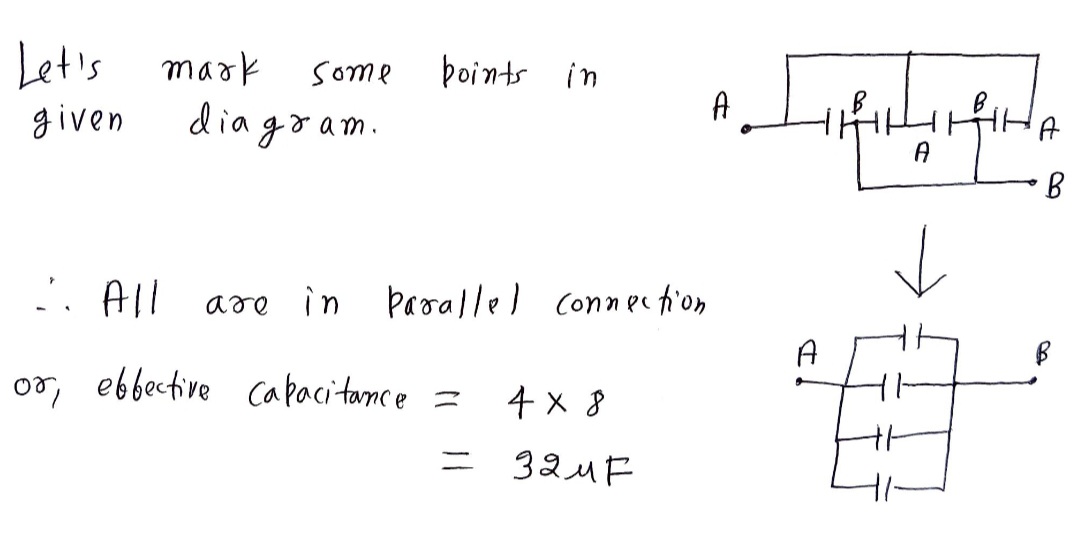 Let's mark some points in
given diagram.
A
B
B
A
A
B
∴ All are in parallel connection
A
B
or, effective capacitance = 4 × 8
= 32 μF